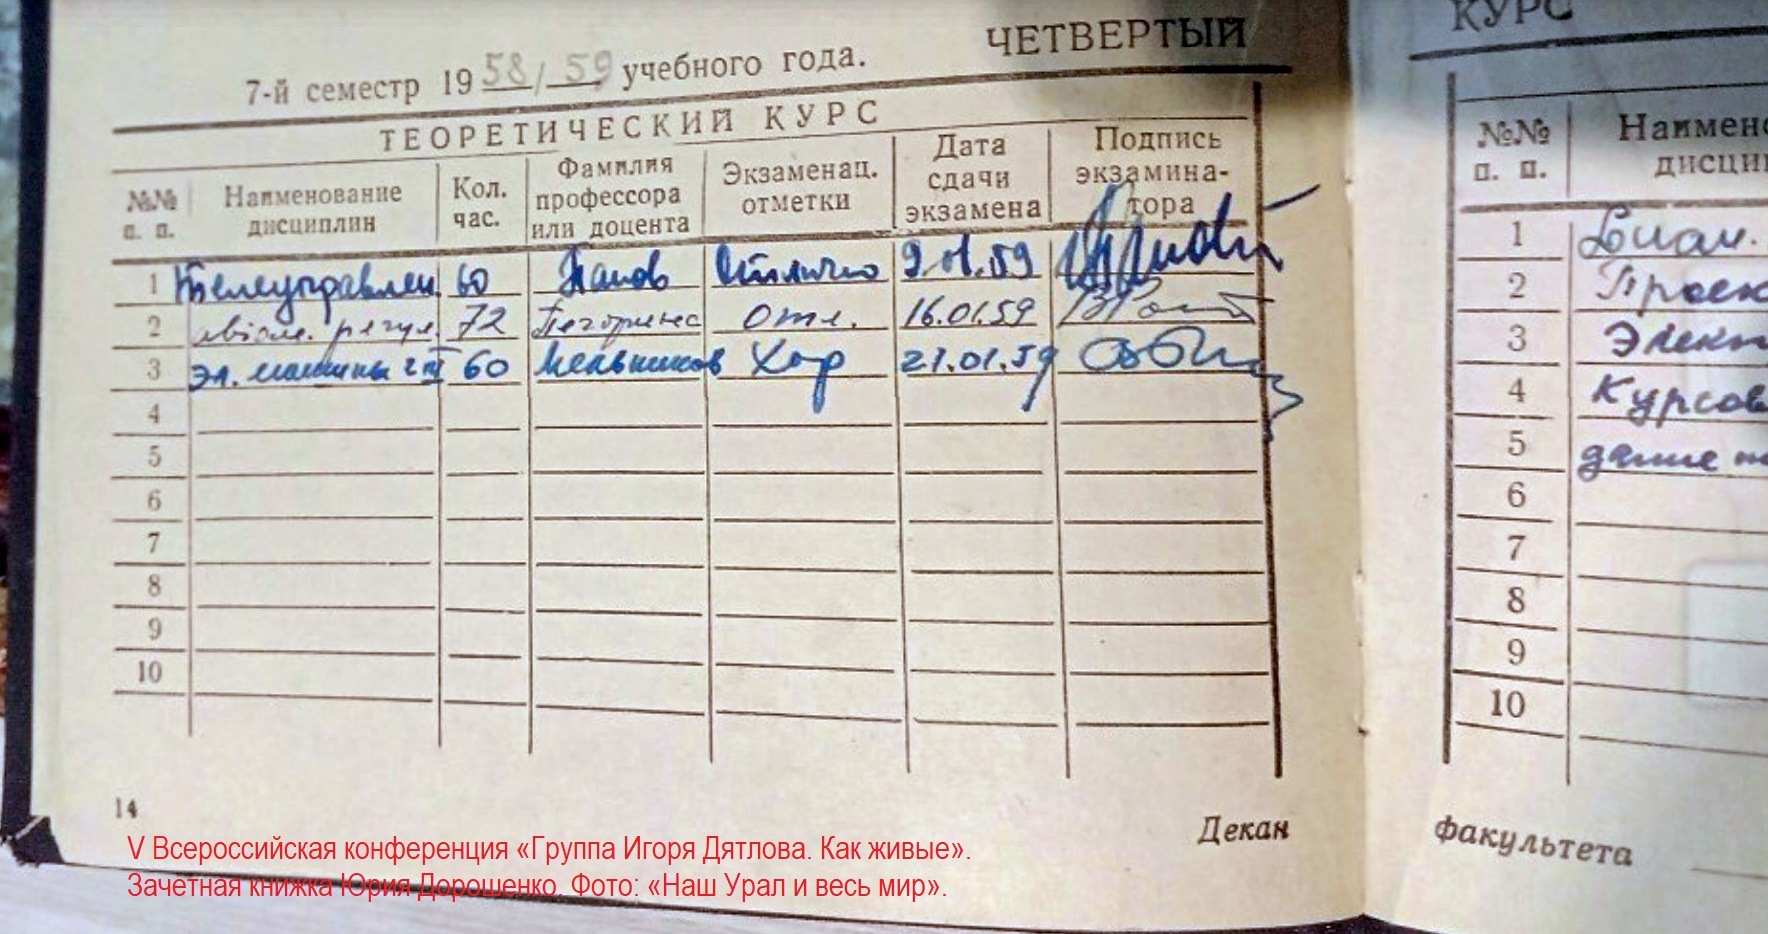 ЧЕТВЕРТЫЙ
7-й семестр 1958/59 учебного года.
ТЕОРЕТИЧЕСКИЙ КУРС
№№ п. п. Наименование дисциплин Кол. час. Фамилия профессора или доцента Экзаменац. отметки Дата сдачи экзамена Подпись экзаминатора
1 Телеуправлен 60 Панов Отлично 9.01.59
2 регул. 72 отл. 16.01.59
3 эл. машины ч III 60 Мельников Хор 21.01.59
4
5
6
7
8
9
10
14
Декан
КУРС
№№ п. п. Наимено дисци
1
2 Проек
3 Элект
4 Курсов
5
6
7
8
9
10
факультета
V Всероссийская конференция «Группа Игоря Дятлова. Как живые».
Зачетная книжка Юрия Дорошенко. Фото: «Наш Урал и весь мир».